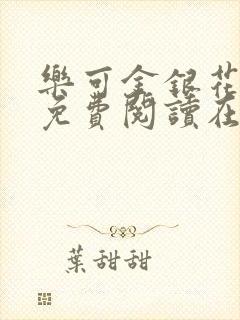 樂可金銀花
免費閱讀在
葉甜甜